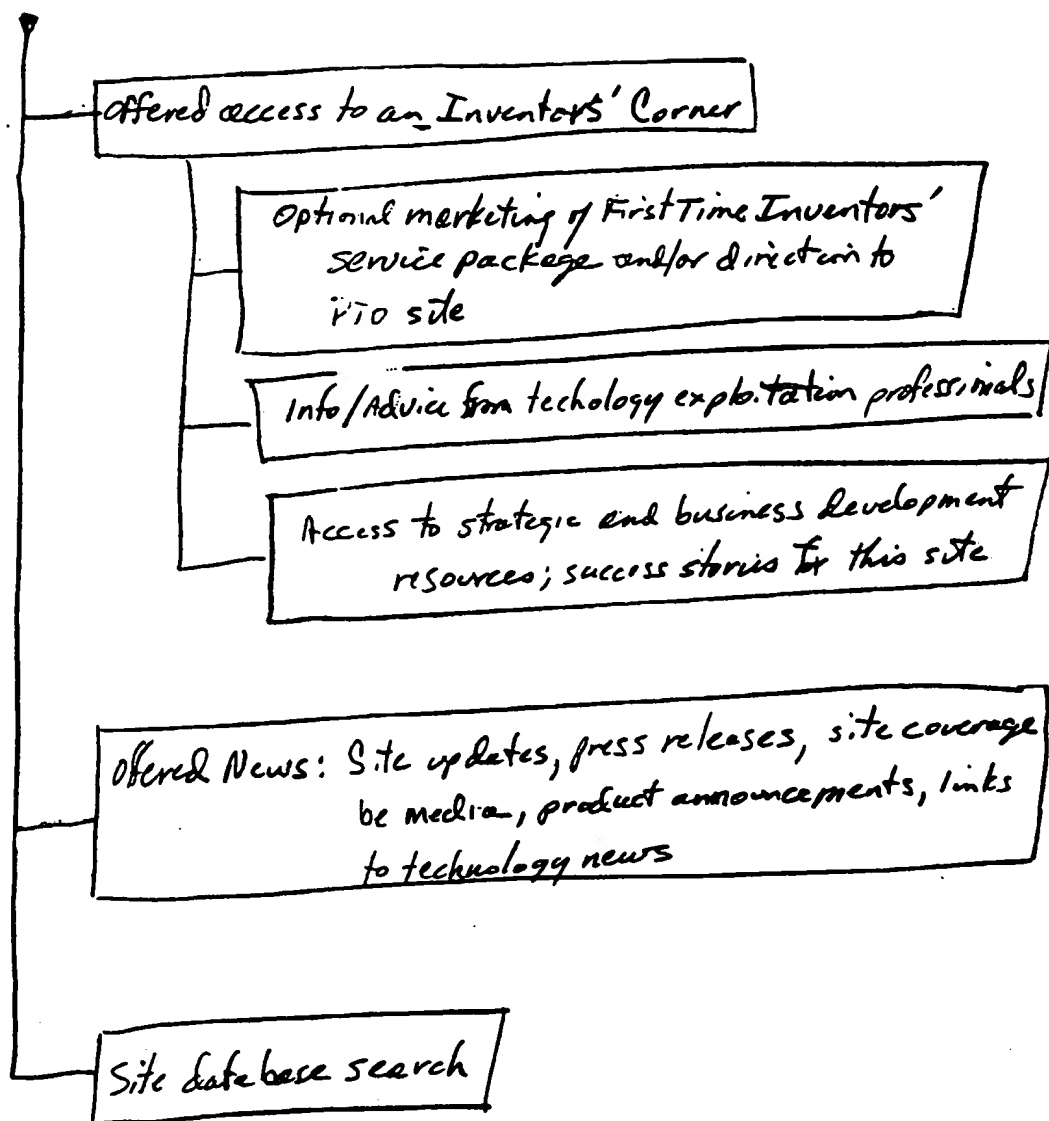 Offered access to an Inventors' Corner
Optional marketing of First Time Inventors'
service package and/or direction to
PTO site
Info/Advice from techology exploitation professionals
Access to strategic and business development
resources; success stories for this site
Offered News: Site updates, press releases, site coverage
be media, product announcements, links
to technology news
Site database search